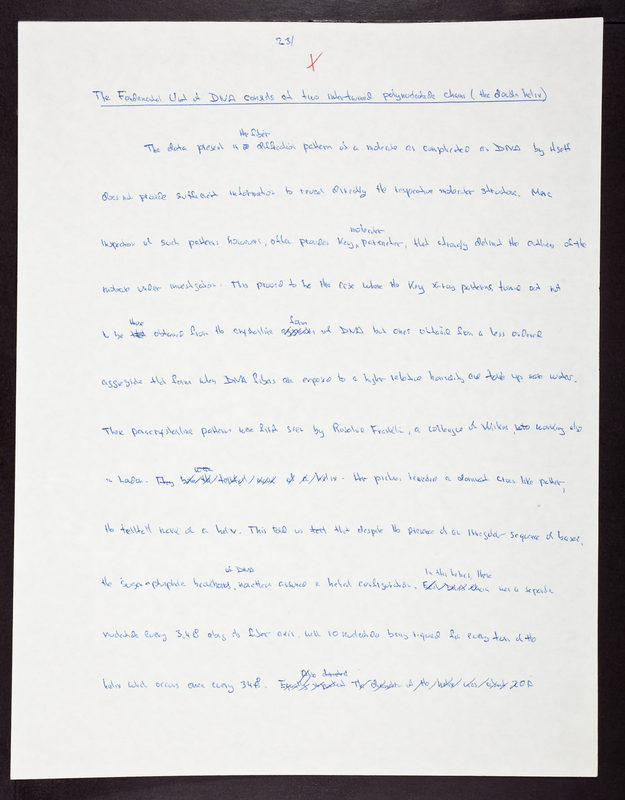 23/
X
The Fundamental Unit of DNA consists of two intertwined polynucleotide chains (the double helix)
the fiber
The data present in diffraction pattern of a molecule as complicated as DNA by itself
does not provide sufficient information to reveal directly the respective molecular structure. More
molecular
inspection of such patterns however, often provides key parameter, that strongly delimit the outlines of the
molecule under investigation. This proved to be the case where the key x-ray patterns turned out not
these form
to be obtained from the crystalline of DNA but ones obtained from a less ordered
aggregate that forms when DNA fibers are exposed to a higher relative humidity and take up more water.
These paracrystalline patterns were first seen by Rosalind Franklin, a colleague of Wilkins, working also
in London. They of a helix. Her pictures revealed a dominant cross like pattern,
the telltell mark of a helix. This told us that despite the presence of an irregular sequence of bases,
of DNA In this helix, there
the sugar-phosphate backbones, nonetheless assumed a helical configuration. Each DNA chain was a separate
nucleotide every 3.4Å along its fiber axis, with 10 nucleotides being required for every turn of the
helix which occurs once every 34Å. The diameter of the helix was about 20Å